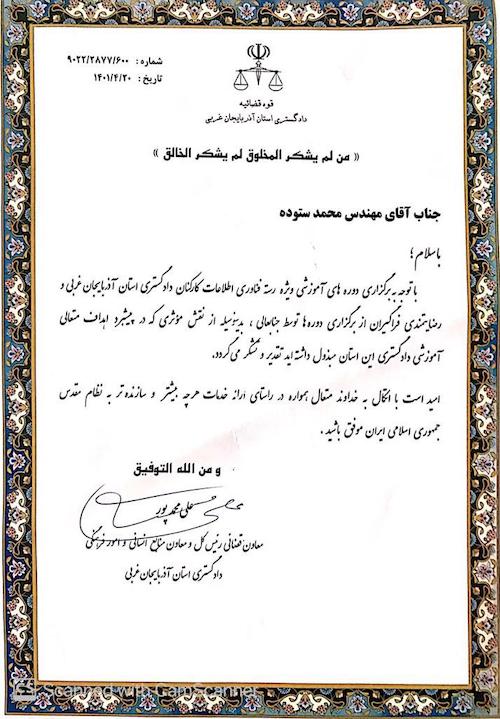 شماره : ۹۰۲۲/۲۸۷۷/۶۰۰
تاریخ : ۱۴۰۱/۴/۲۰
قوه قضائیه
دادگستری استان آذربایجان غربی
« من لم یشکر المخلوق لم یشکر الخالق »
جناب آقای مهندس محمد ستوده
باسلام ؛
با توجه به برگزاری دوره های آموزشی ویژه رسته فناوری اطلاعات کارکنان دادگستری استان آذربایجان غربی و
رضایتمندی فراگیران از برگزاری دوره ها توسط جنابعالی ، بدینوسیله از نقش مؤثری که در پیشبرد اهداف متعالی
آموزشی دادگستری این استان مبذول داشته اید تقدیر و تشکر می گردد.
امید است با اتکال به خداوند متعال همواره در راستای ارائه خدمات هرچه بیشتر و سازنده تر به نظام مقدس
جمهوری اسلامی ایران موفق باشید .
و من الله التوفیق
علی محمدپور
معاون قضائی رئیس کل و معاون منابع انسانی و امور فرهنگی
دادگستری استان آذربایجان غربی
Scanned with CamScanner